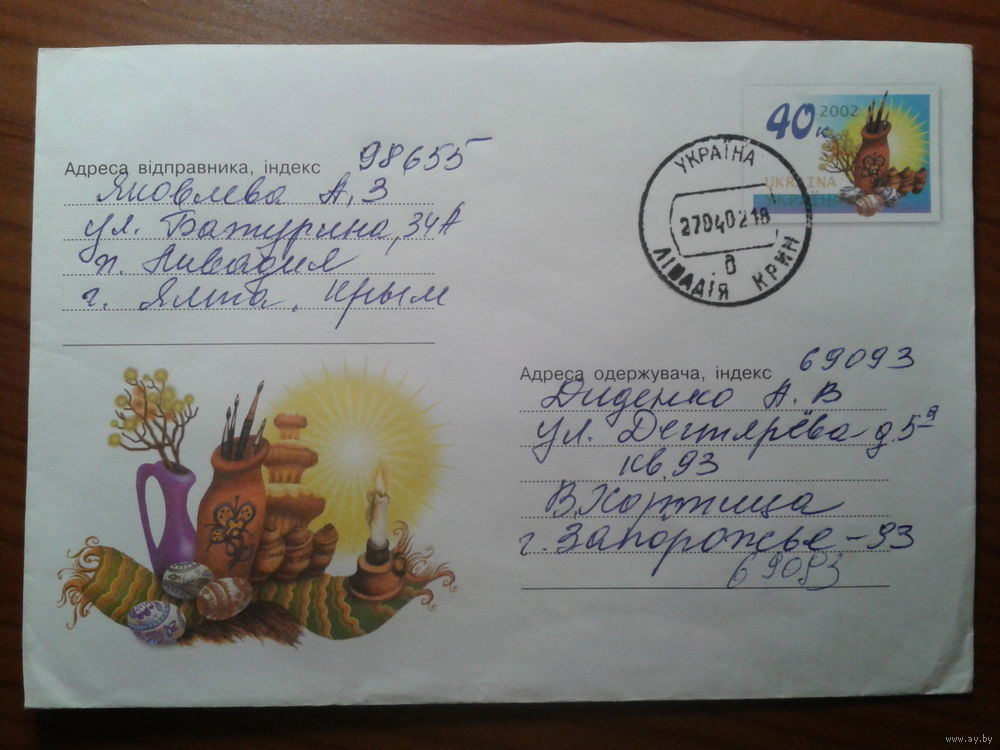 Адреса відправника, індекс 98655
Яковлева А, З
ул. Батурина, 34А
п. Ливадия
г. Ялта, Крым
40 к
2002
UKRAINA
УКРАЇНА
УКРАЇНА
27040218
д
ЛІВАДІЯ КРИМ
Адреса одержувача, індекс 69093
Диденко А. В
ул. Дегтярёва д. 5-а
кв. 93
В. Хортица
г. Запорожье-93
69093
www.ay.by